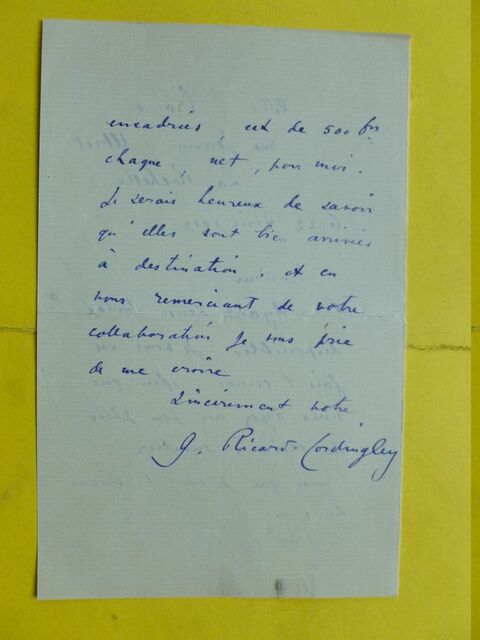 encadrées est de 500 frs
chaque net, pour moi.
Je serais heureux de savoir
qu'elles sont bien arrivées
à destination. et en
vous remerciant de votre
collaboration je vous prie
de me croire
Sincèrement votre
G. Ricard-Cordingley